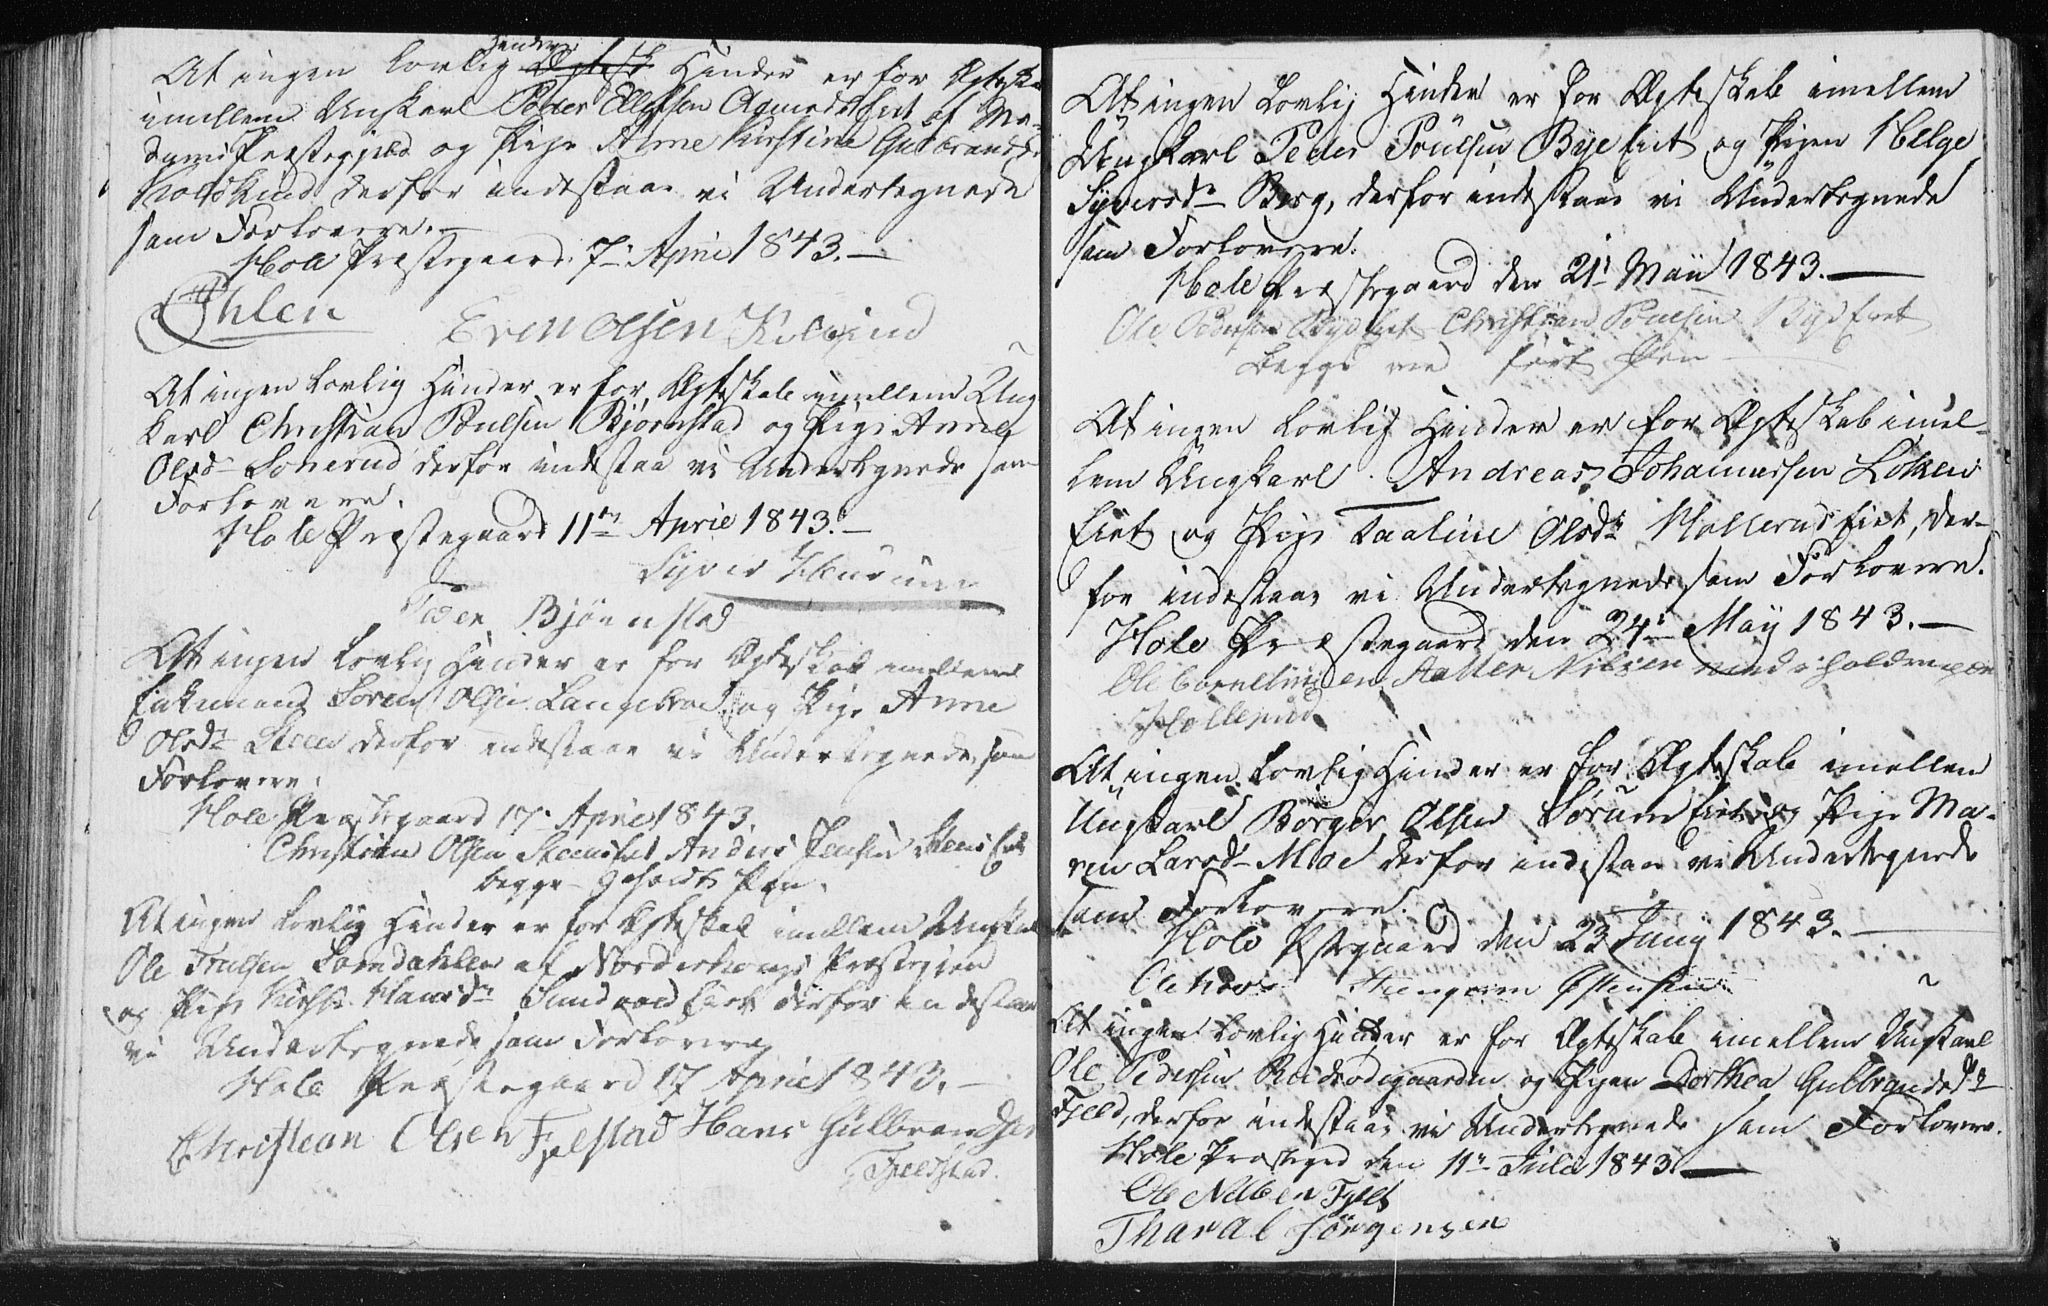 At ingen lovlig Hinder er for Ægteska
imellem Unkarl Peder Ellefsen Eiet af Mo-
dums Præstegjeld og Pige Anne Kirstine Gulbrandsd.
derfor indestaar vi Undertegnede
som Forlovere.
Hole Præstegaard 7 April 1843.
Ihlen
Even Olsen
At ingen lovlig Hinder er for Ægteskab imellem Ung-
karl Christian Poulsen Bjørnstad og Pige Anne
Olsd Sonerud derfor indestaa vi Undertegnede som
Forlovere.
Hole Præstegaard 11te April 1843.
Syver
Peder Bjørnstad
At ingen lovlig Hinder er for Ægteskab imellem
Enkemand Søren Olsen og Pige Anne
Olsdr Steen derfor indestaar vi Undertegnede som
Forlovere.
Hole Præstegaard 17 April 1843
Christian Olsen Anders Jensen Steens Eiet
begge Pen.
At ingen lovlig Hinder er for Ægteskab imellem Ungkarl
Ole Truelsen af Norderhougs Præstegjeld
og Pige Hansdr Sundvold Eiet derfor indestaar
vi Undertegnede som Forlovere
Hole Præstegaard 17 April 1843.
Christian Olsen Fjelstad Hans Gulbrandsen
Fjeldstad.
At ingen Lovlig Hinder er for Ægteskab imellem
Ungkarl Peder Poulsen Bye Eiet og Pigen Helge
Syversdr Berg, derfor indestaar vi Undertegnede
som Forlovere.
Hole Præstegaard den 21 Maii 1843.
Ole Pedersen Christian Poulsen
begge med ført Pen
At ingen lovlig Hinder er for Ægteskab imel-
lem Ungkarl Andreas Johannessen Løken
Eiet og Pige Karline Olsdr Hollerud Eiet, der-
for indestaar vi Undertegnede som Forlovere.
Hole Præstegaard den 24 Maÿ 1843.
Ole Corneliusen Halter Nilsen med i holden pen
Hollerud
At ingen Lovlig Hinder er for Ægteskab imellem
Ungkarl Børger Olsen Sørum Eiet og Pige Ma-
ren Larsdr Moe derfor indestaar vi Undertegnede
som Forlovere.
Hole Pstegaard den 23 Junÿ 1843.
Østensen
At ingen lovlig Hinder er for Ægteskab imellem Ungkarl
Ole Pedersen og Pigen Dorthea Gulbrandsdr
Fjeld, derfor indestaar vi Undertegnede som Forlovere.
Hole Præsteged den 11 Juli 1843.
Ole Nilsen Fjeld
Tharal Jörgensen